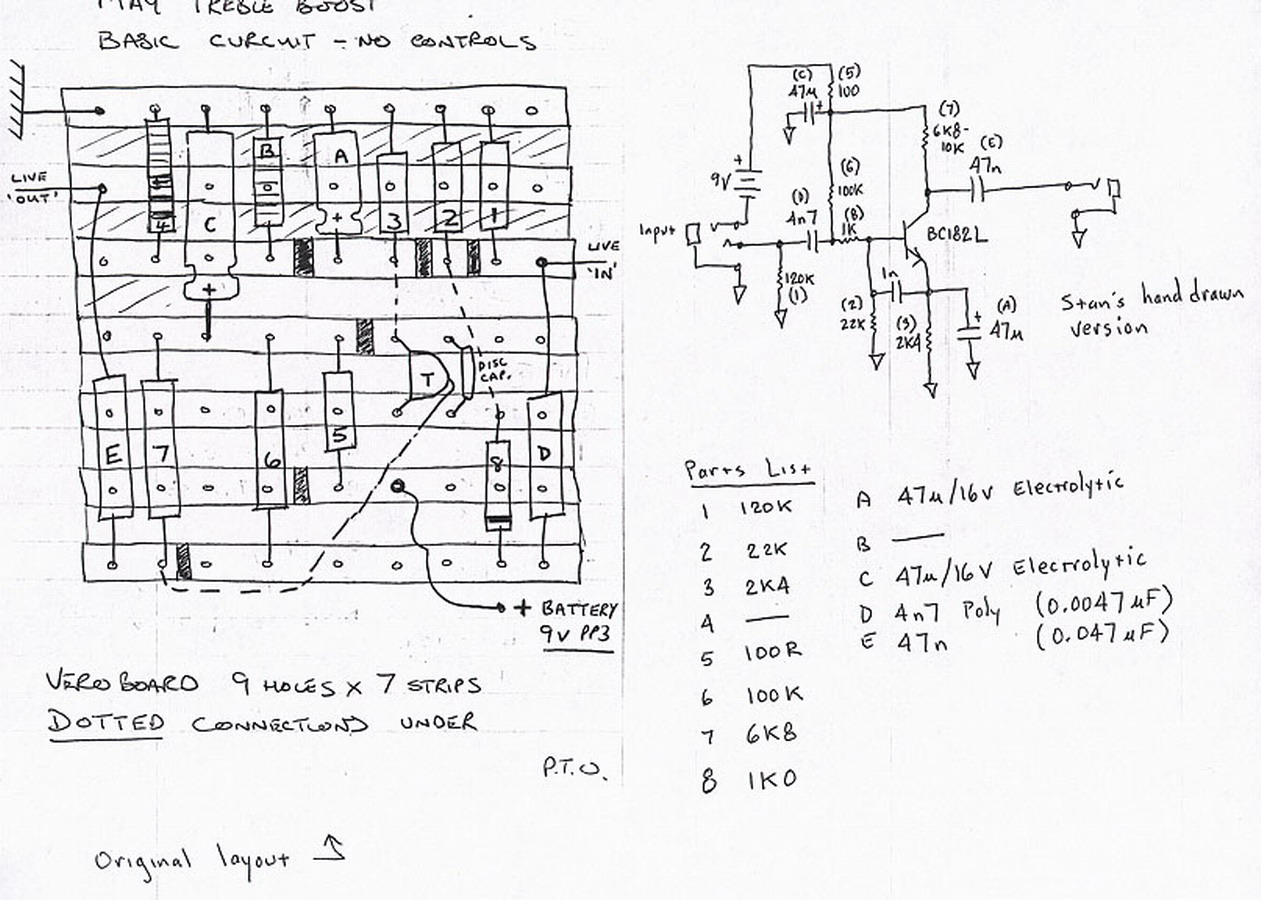 MAY TREBLE BOOST
BASIC CURCUIT - NO CONTROLS
LIVE
'OUT'
B
A
4
C
+
3
2
1
LIVE
'IN'
+
T
DISC
CAP.
E
7
6
5
8
D
+ BATTERY
9V PP3
VEROBOARD 9 HOLES X 7 STRIPS
DOTTED CONNECTIONS UNDER
P.T.O.
Original layout
(C)
47µ
+
(5)
100
(7)
6K8-
10K
(E)
47n
+
9V
(6)
100K
(D)
4n7
(8)
1K
Input
BC182L
120K
(1)
1n
(2)
22K
(3)
2K4
+
(A)
47µ
Stan's hand drawn
version
Parts List
1 120K
2 22K
3 2K4
4 —
5 100R
6 100K
7 6K8
8 1K0
A 47µ/16V Electrolytic
B —
C 47µ/16V Electrolytic
D 4n7 Poly (0.0047µF)
E 47n (0.047µF)